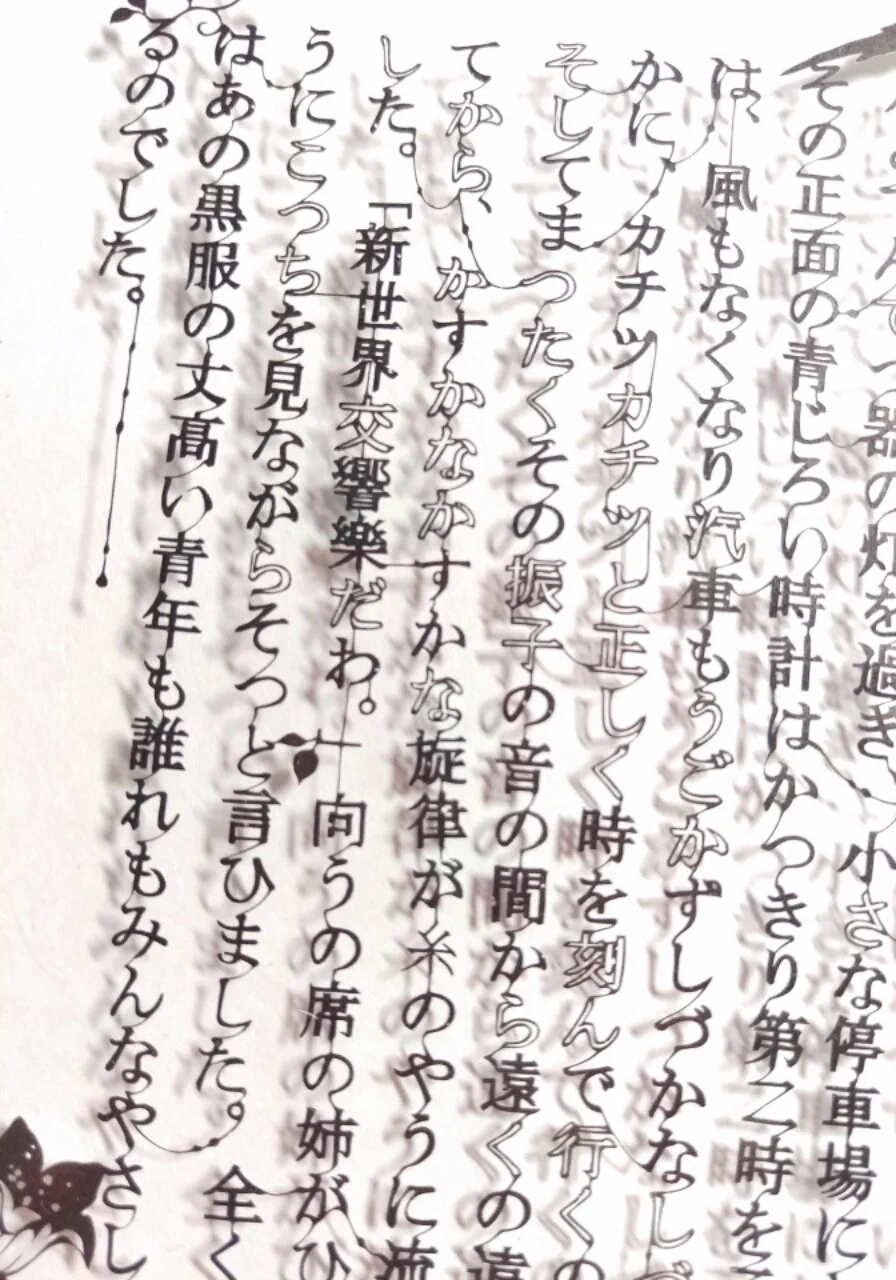 器の灯を過ぎ、小さな停車場に
その正面の青じろい時計はかつきり第二時を
は、風もなくなり汽車もうごかずしづかなしづ
かに、カチツカチツと正しく時を刻んで行くの
そしてまつたくその振子の音の間から遠くの遠
てから、かすかなかすかな旋律が糸のやうに流
した。「新世界交響樂だわ。」向うの席の姉がひ
うにこつちを見ながらそつと言ひました。全く
はあの黒服の丈高い青年も誰れもみんなやさし
るのでした。